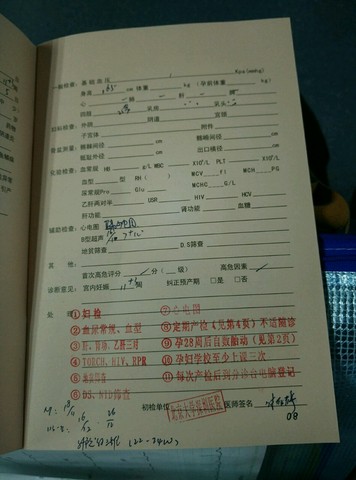 一般检查：基础血压 / Kpa(mmHg)
身高 165 cm 体重 kg（孕前体重 kg）
心 肺 肝 脾
四肢 乳房 乳头
妇科检查：外阴 阴道 宫颈
子宫体 附件
骨盆测量：髂棘间径 cm 髂嵴间径 cm
骶耻外径 cm 出口横径 cm
化验检查：血常规 HB g/L WBC X10⁹/L PLT X10⁹/L
血型 型 RH( ) MCV fl MCH PG
尿常规Pro Glu MCHC G/L
乙肝两对半 USR HIV HCV
肝功能 肾功能 血糖
辅助检查：心电图
B型超声
地贫筛查 D.S筛查
其 他：
首次高危评分 分（ 级） 高危因素
诊断意见：宫内妊娠 11⁺³周 纠正预产期 □是 □否
处 理：
①妇检 ⑦心电图
②血尿常规、血型 ⑧定期产检（见第4页）不适随诊
③肝、肾功、乙肝三对 ⑨孕28周后自数胎动（见第2页）
④TORCH、HIV、RPR ⑩孕妇学校至少上课三次
⑤地贫筛查 ⑪每次产检后到分诊台电脑登记
⑥DS、NTD筛查
初检单位 北京大学深圳医院 医师签名
08
(22-24W)